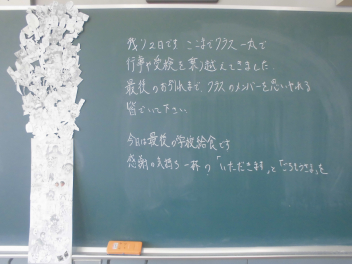 残り2日です ここまでクラス一丸で
行事や受検を乗り越えてきました
最後のお別れまで、クラスのメンバーを思いやれる
皆でいて下さい
今日は最後の学校給食です
感謝の気持ち一杯の「いただきます」と「ごちそうさま」を